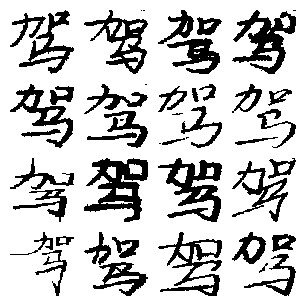 驾驾驾驾
驾驾驾驾
驾驾驾驾
驾驾驾驾